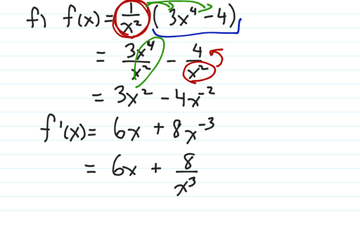 f) f(x) = 1/x² (3x⁴ - 4)
= 3x⁴/x² - 4/x²
= 3x² - 4x⁻²
f'(x) = 6x + 8x⁻³
= 6x + 8/x³